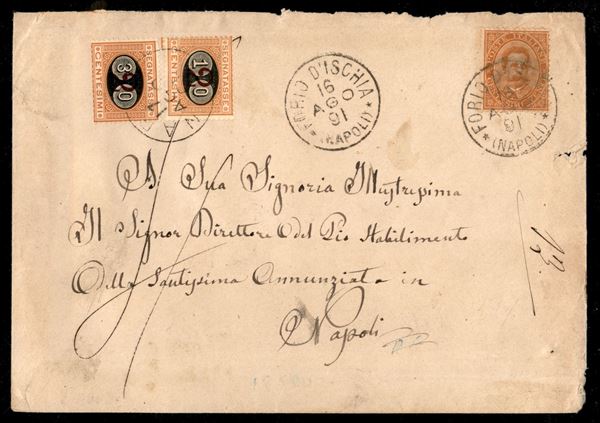 SEGNATASSE
CENTESIMI
30
SEGNATASSE
CENTESIMI
10
FORIO D'ISCHIA
16
AGO
91
(NAPOLI)
FORIO
AGO
91
(NAPOLI)
A Sua Signoria Illustrissima
Il Signor Direttore del Pio Stabilimento
Della Santissima Annunziata in
Napoli